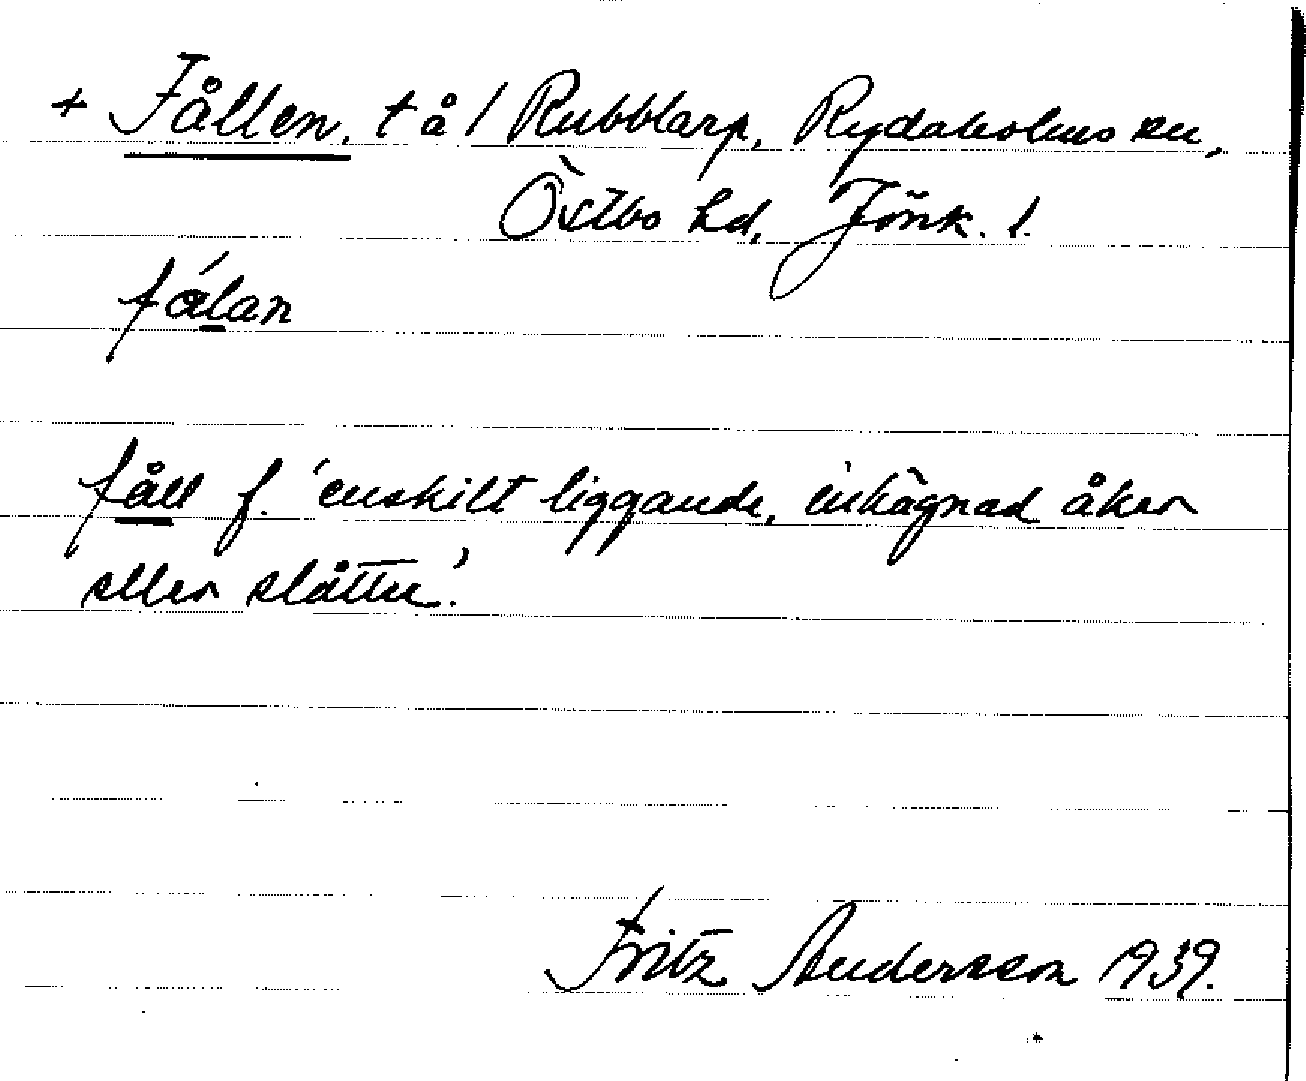 + Fållen, t å / Rubblarp, Rydaholms sn,
Östbo hd, Jönk. l.
fá̊lan
fåll f. 'enskilt liggande, inhägnad åker
eller slåtter'.
Fritz Andersson 1939.